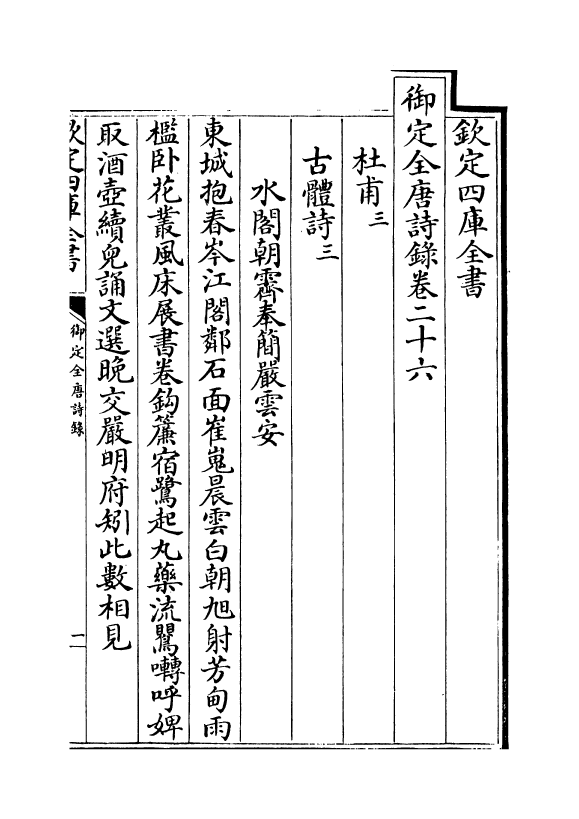 欽定四庫全書
御定全唐詩錄卷二十六
杜甫三
古體詩三
水閣朝霽奉簡嚴雲安
東城抱春岑江閣鄰石面崔嵬晨雲白朝旭射芳甸雨
檻卧花叢風床展書卷鈎簾宿鷺起丸藥流鶯囀呼婢
取酒壺續兒誦文選晚交嚴明府矧此數相見
欽定四庫全書
御定全唐詩錄